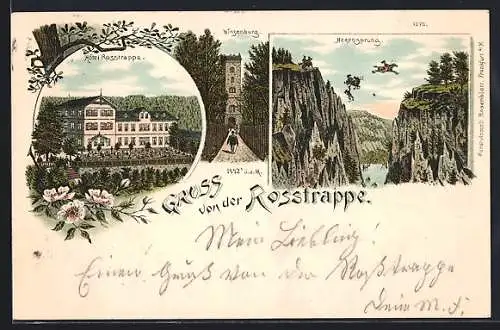 Hôtel Rosstrappe.
Winzenburg.
1442' ü.d.M.
Hexensprung.
1275.
Kunstanstalt Rosenblatt, Frankfurt a/M.
GRUSS
von der Rosstrappe.
Mein Liebling!
Einen Gruß von der Roßtrappe
Dein M.